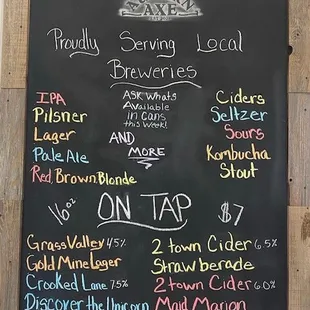 AXE
Proudly Serving Local
Breweries
IPA
Pilsner
Lager
Pale Ale
Red, Brown, Blonde
Ask Whats
Available
in Cans
this Week!
AND
MORE
Ciders
Seltzer
Sours
Kombucha
Stout
16oz
ON TAP
$7
Grass Valley 4.5%
Gold Mine Lager
Crooked Lane 7.5%
Discover the Unicorn
2 town Cider 6.5%
Strawberade
2 town Cider 6.0%
Maid Marion